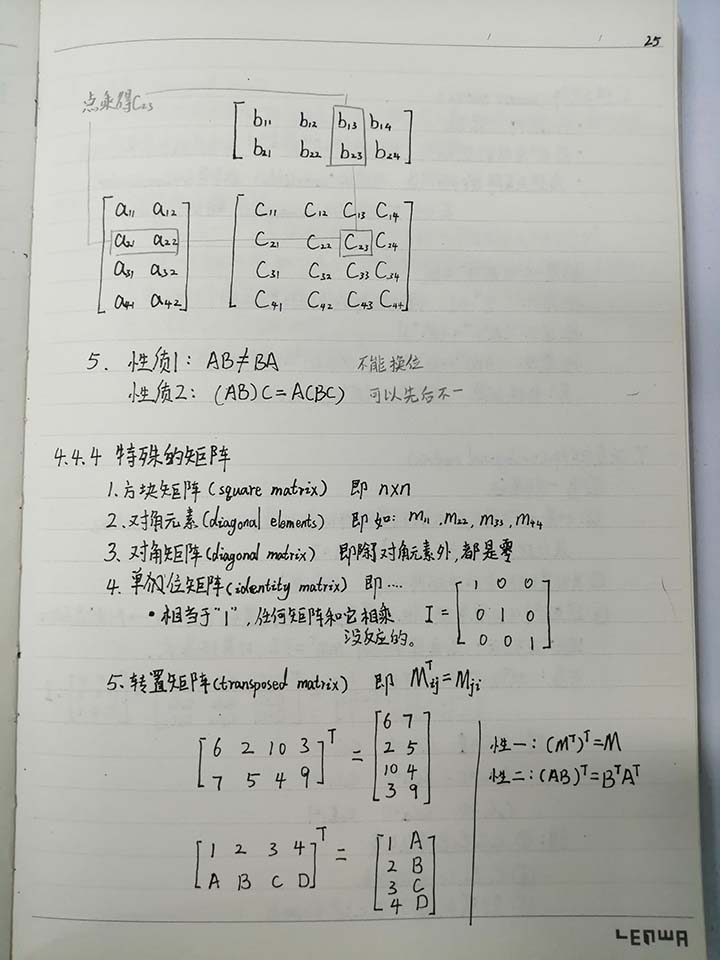 25
点乘得C₂₃
[ b₁₁ b₁₂ b₁₃ b₁₄
b₂₁ b₂₂ b₂₃ b₂₄ ]
[ a₁₁ a₁₂
a₂₁ a₂₂
a₃₁ a₃₂
a₄₁ a₄₂ ]
[ C₁₁ C₁₂ C₁₃ C₁₄
C₂₁ C₂₂ C₂₃ C₂₄
C₃₁ C₃₂ C₃₃ C₃₄
C₄₁ C₄₂ C₄₃ C₄₄ ]
5. 性质1: AB≠BA 不能换位
性质2: (AB)C=A(BC) 可以先后不一
4.4.4 特殊的矩阵
1. 方块矩阵(square matrix) 即 n×n
2. 对角元素(diagonal elements) 即如: m₁₁, m₂₂, m₃₃, m₄₄
3. 对角矩阵(diagonal matrix) 即除了对角元素外,都是零
4. 单位矩阵(identity matrix) 即....
•相当于"1",任何矩阵和它相乘
没反应的。
I = [ 1 0 0
0 1 0
0 0 1 ]
5. 转置矩阵(transposed matrix) 即 Mᵀij=Mji
[ 6 2 10 3
7 5 4 9 ]ᵀ =
[ 6 7
2 5
10 4
3 9 ]
性一: (Mᵀ)ᵀ=M
性二: (AB)ᵀ=BᵀAᵀ
[ 1 2 3 4
A B C D ]ᵀ =
[ 1 A
2 B
3 C
4 D ]
LENWA